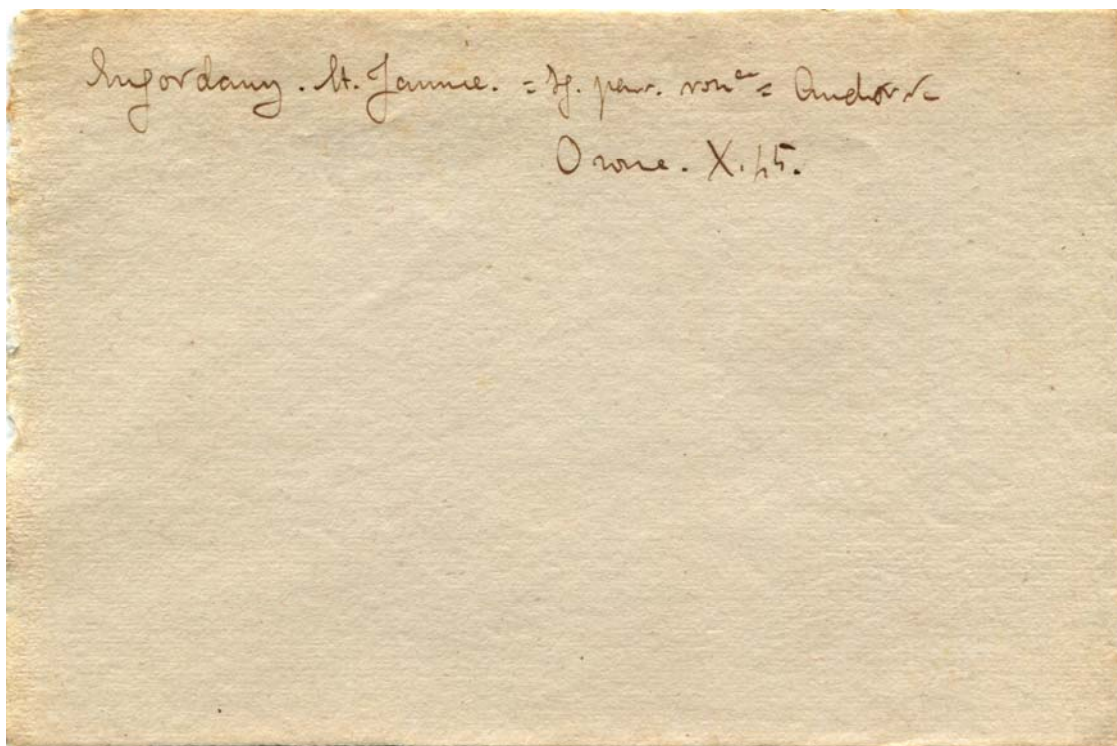 Engordany. St. Jaume. = Ig. par. rom^ca = Andorra
Orone. X.45.